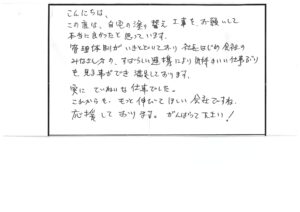 こんにちは、
この度は、自宅の塗り替え工事をお願いして
本当に良かったと思っています。
管理体制がいきとどいており 社長はじめ会社の
みなさん方の、すばらしい連携により 気持のいい仕事ぶり
を見る事ができ 満足しております。
実に ていねいな仕事でした。
これからも、もっと伸びてほしい会社ですね
応援しております。がんばって下さい!